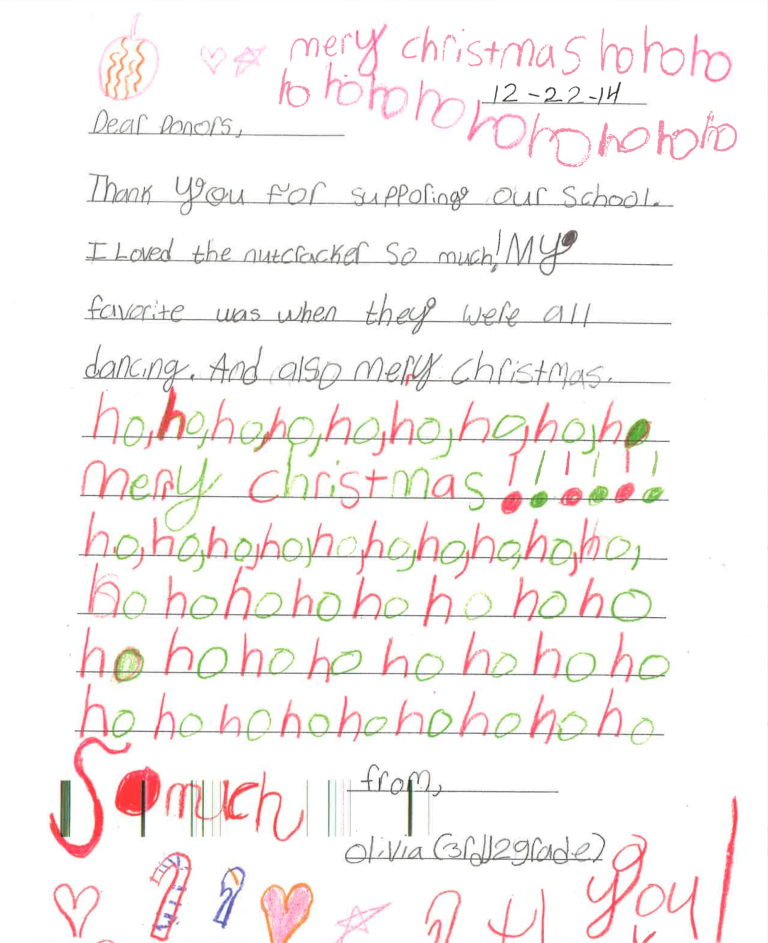 mery christmas ho ho ho
ho ho ho ho ho ho ho ho ho
12-22-14
Dear Donors,
Thank you for supporing our School.
I Loved the nutcracker so much! My
favorite was when they were all
dancing. And also merry christmas.
ho,ho,ho,ho,ho,ho,ho,ho,ho
merry christmas !!!!!!
ho,ho,ho,ho,ho,ho,ho,ho,ho,ho,
ho ho ho ho ho ho ho ho
ho ho ho ho ho ho ho ho
ho ho ho ho ho ho ho ho ho
So much
from,
olivia (3rd/2grade)
you!